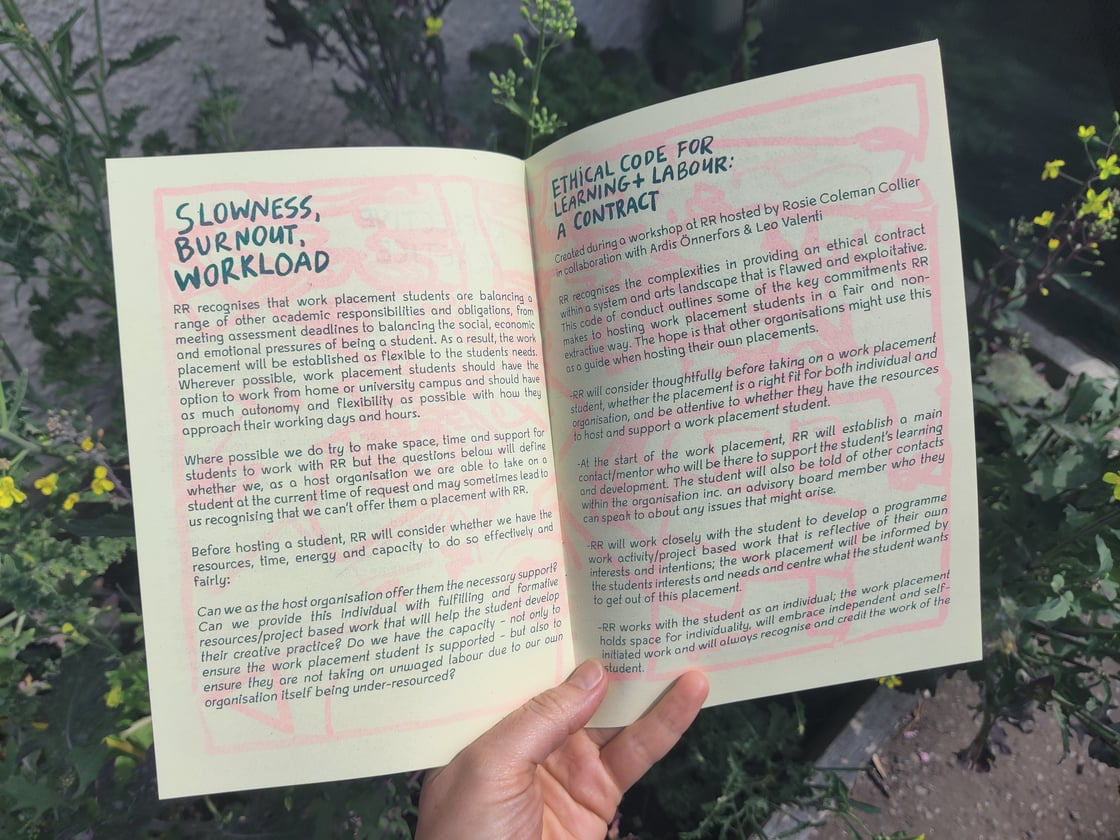 SLOWNESS,
BURNOUT,
WORKLOAD
RR recognises that work placement students are balancing a
range of other academic responsibilities and obligations, from
meeting assessment deadlines to balancing the social, economic
and emotional pressures of being a student. As a result, the work
placement will be established as flexible to the students needs.
Wherever possible, work placement students should have the
option to work from home or university campus and should have
as much autonomy and flexibility as possible with how they
approach their working days and hours.
Where possible we do try to make space, time and support for
students to work with RR but the questions below will define
whether we, as a host organisation we are able to take on a
student at the current time of request and may sometimes lead to
us recognising that we can't offer them a placement with RR.
Before hosting a student, RR will consider whether we have the
resources, time, energy and capacity to do so effectively and
fairly:
Can we as the host organisation offer them the necessary support?
Can we provide this individual with fulfilling and formative
resources/project based work that will help the student develop
their creative practice? Do we have the capacity - not only to
ensure the work placement student is supported - but also to
ensure they are not taking on unwaged labour due to our own
organisation itself being under-resourced?
ETHICAL CODE FOR
LEARNING + LABOUR:
A CONTRACT
Created during a workshop at RR hosted by Rosie Coleman Collier
in collaboration with Ardis Önnerfors & Leo Valenti
RR recognises the complexities in providing an ethical contract
within a system and arts landscape that is flawed and exploitative.
This code of conduct outlines some of the key commitments RR
makes to hosting work placement students in a fair and non-
extractive way. The hope is that other organisations might use this
as a guide when hosting their own placements.
-RR will consider thoughtfully before taking on a work placement
student, whether the placement is a right fit for both individual and
organisation, and be attentive to whether they have the resources
to host and support a work placement student.
-At the start of the work placement, RR will establish a main
contact/mentor who will be there to support the student's learning
and development. The student will also be told of other contacts
within the organisation inc. an advisory board member who they
can speak to about any issues that might arise.
-RR will work closely with the student to develop a programme
work activity/project based work that is reflective of their own
interests and intentions; the work placement will be informed by
the students interests and needs and centre what the student wants
to get out of this placement.
-RR works with the student as an individual; the work placement
holds space for individuality, will embrace independent and self-
initiated work and will always recognise and credit the work of the
student.